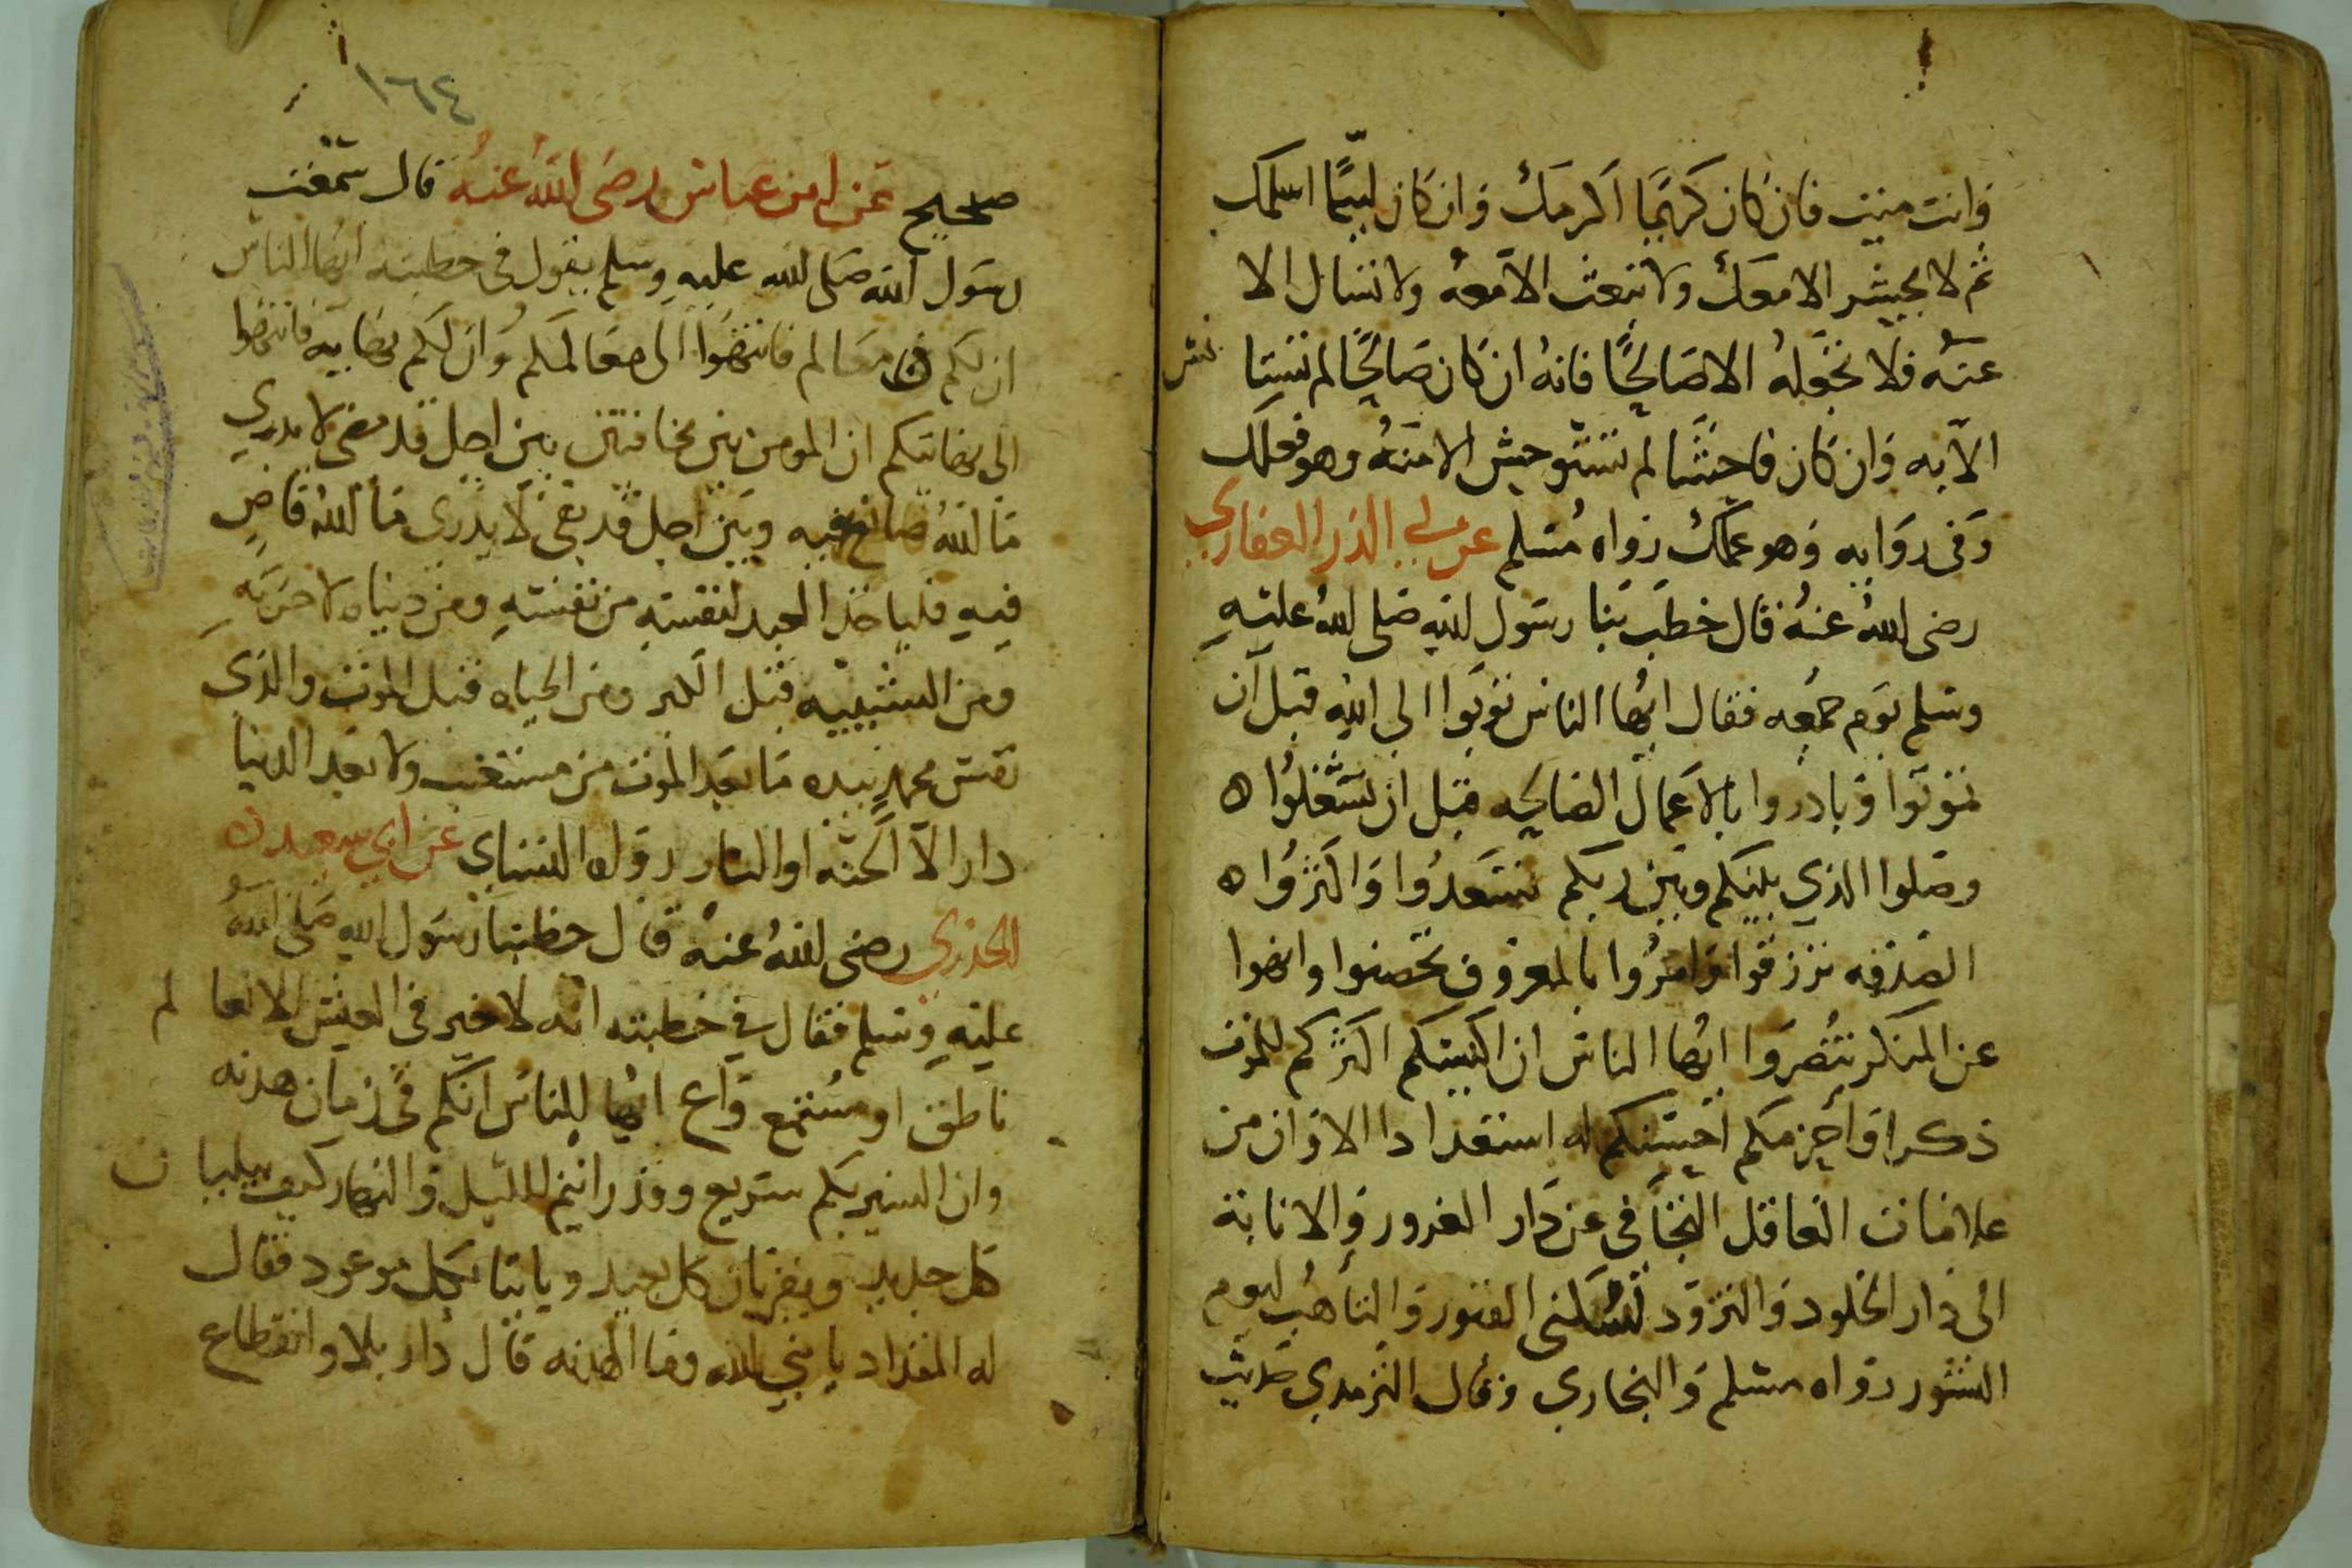 وانت ميت فان كان كريمًا اكرمك وان كان لييمًا اسلمك
ثم لا يحشر الا معك ولا تبعث الا معه ولا تسال الا
عنه فلا تجعله الا صالحًا فانه ان كان صالحًا لم تستا نس
الا به وان كان فاحشا لم تستوحش الا منه وهو فعلك
وفي روايه وهو عملك رواه مسلم عن ابي الذر الغفاري
رضى الله عنه قال خطب بنا رسول الله صلى الله عليه
وسلم يوم جمعه فقال ايها الناس توبوا الى الله قبل ان
تموتوا وبادروا بالاعمال الصالحه قبل ان تشغلوا ه
وصلوا الذي بينكم وبين ربكم تسعدوا واكثروا ه
الصدقه ترزقوا وامروا بالمعروف تحصنوا وانهوا
عن المنكر تنصروا ايها الناس ان اكيسكم اكثركم للموت
ذكرا واحزمكم احسنكم له استعدادا الا وان من
علامات العاقل التجافي عن دار الغرور والانابة
الى دار الخلود والتزود لسكنى القبور والتأهب ليوم
النشور رواه مسلم والبخاري وقال الترمدي حديث
١٦٤
صحيح عن ابن عباس رضى الله عنه قال سمعت
رسول الله صلى الله عليه وسلم يقول في خطبته ايها الناس
ان لكم معالم فانتهوا الى معالمكم وان لكم نهايه فانتهوا
الى نهايتكم ان المومن بين مخافتين بين اجل قد مضى لا يدري
ما الله صانع فيه وبين اجل قد بقى لا يدرى ما الله قاض
فيه فلياخذ العبد لنفسه من نفسه ومن دنياه لاخرته
ومن الشبيبه قبل الكبر ومن الحياه قبل الموت والذى
نفس محمد بيده ما بعد الموت من مستعتب ولا بعد الدنيا
دار الا الجنه او النار رواه النساي عن ابي سعيد ه
الخدري رضى الله عنه قال خطبنا رسول الله صلى الله
عليه وسلم فقال في خطبته انه لا خير في العيش الا لعا لم
ناطق او مستمع واع ايها الناس انكم في زمان هدنه
وان السير بكم سريع وقد رايتم الليل والنهار كيف يبليا ن
كل جديد ويقربان كل بعيد وياتيا بكل موعود فقال
له المقداد يا نبي الله وما الهدنه قال دار بلا وانقطاع